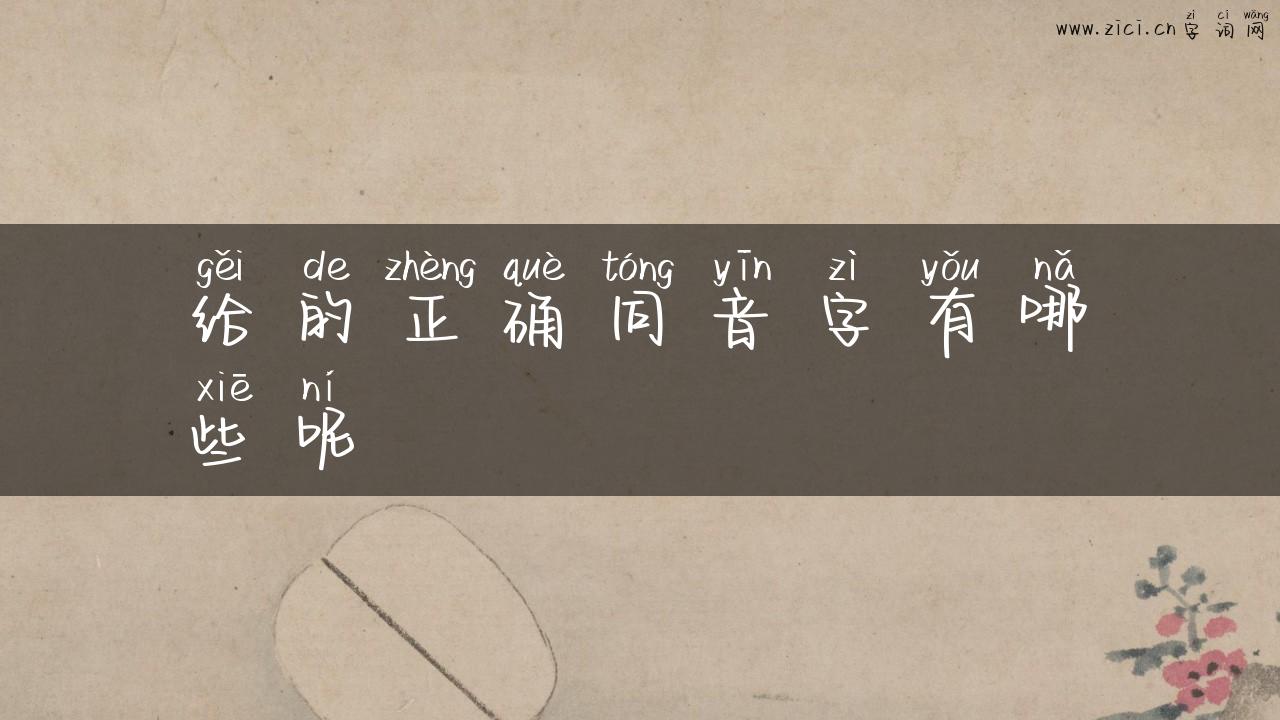 zì cí wǎng
www.zici.cn 字词网
gěi de zhèng què tóng yīn zì yǒu nǎ
给的正确同音字有哪
xiē ní
些呢